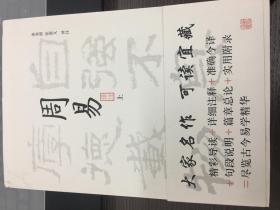 周易
上
大家名作 可读宜藏
精彩导读+详细注释+准确今译
+句段说明+篇章总论+实用附录
=尽览古今易学精华
自强不
厚德载物